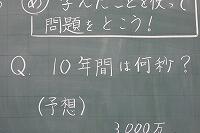 め 学んだことを使って
問題をとこう!
Q. 10年間は何秒?
(予想)
3000万